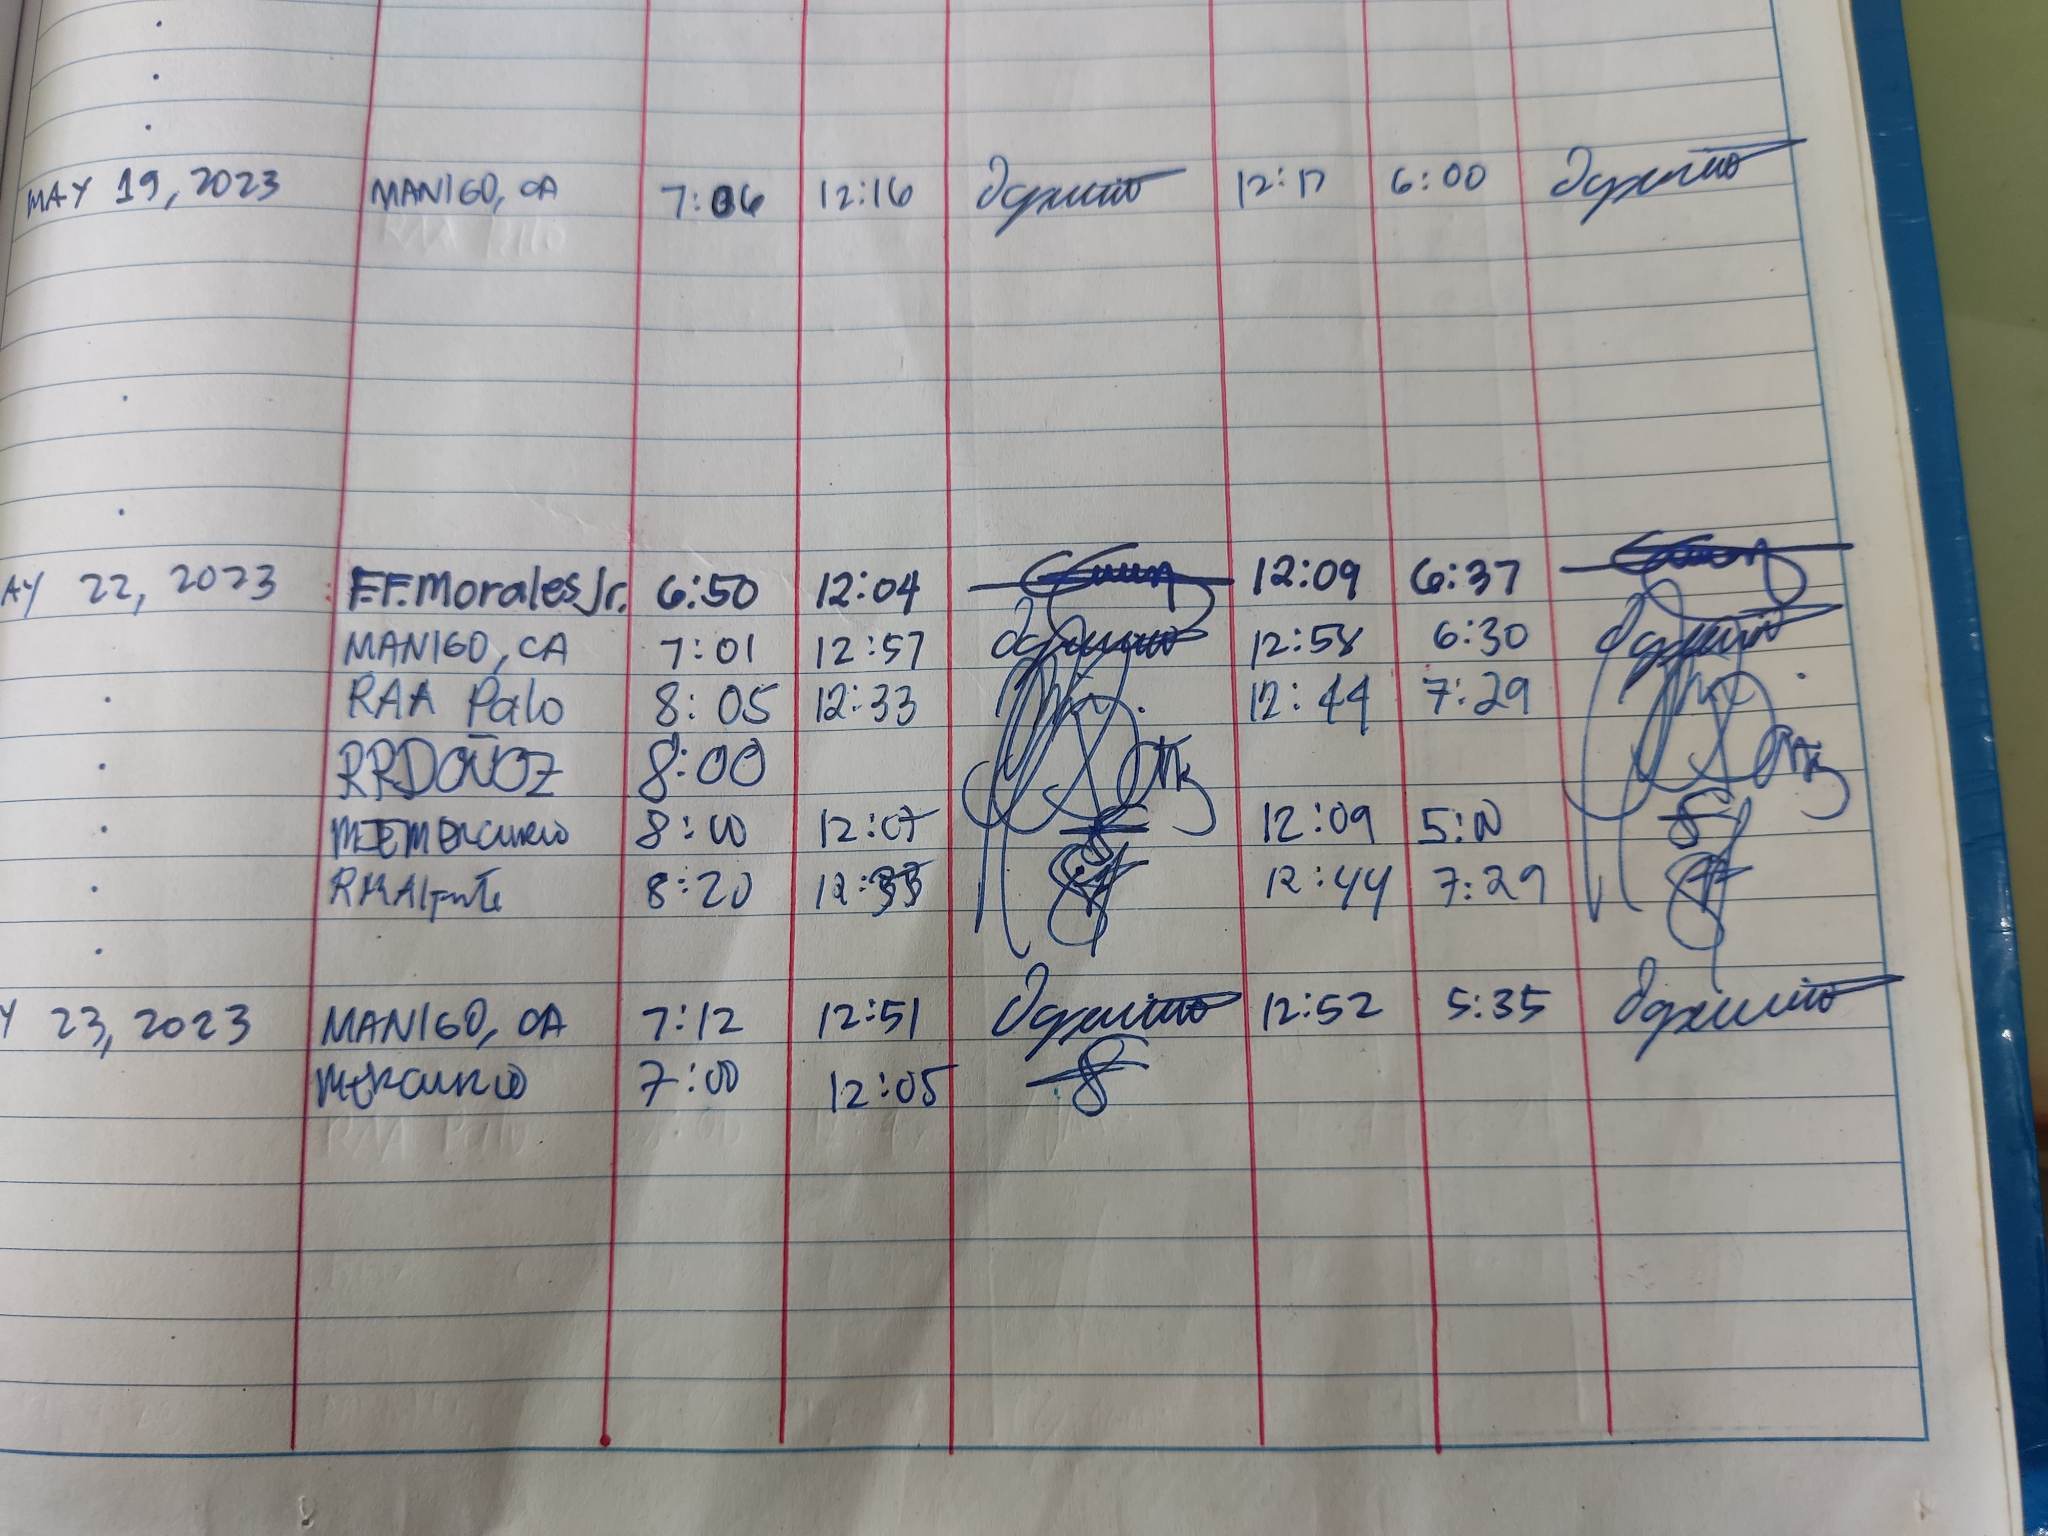 MAY 19, 2023 MANIGO, CA 7:06 12:16 12:17 6:00
AY 22, 2023 F.F. Morales Jr. 6:50 12:04 12:09 6:37
MANIGO, CA 7:01 12:57 12:58 6:30
RAA Palo 8:05 12:33 12:44 7:29
RRDOÑOZ 8:00
MEMERCURIO 8:00 12:07 12:09 5:00
8:20 12:33 12:44 7:29
Y 23, 2023 MANIGO, CA 7:12 12:51 12:52 5:35
MERCURIO 7:00 12:05